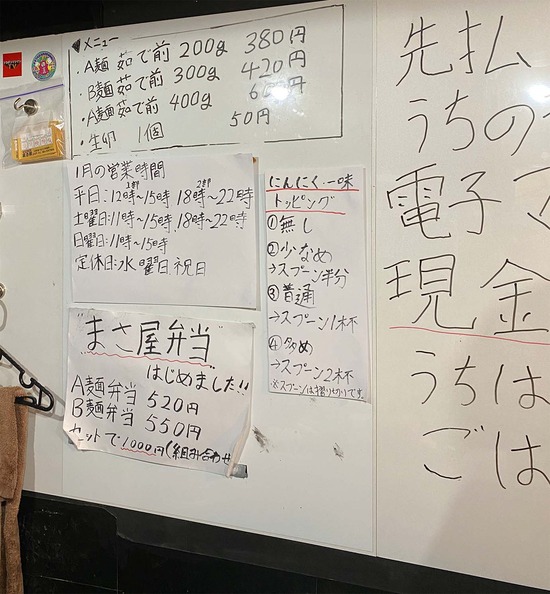 メニュー
・A麺 茹で前 200g 380円
・B麺 茹で前 300g 420円
・A麺 茹で前 400g 600円
・生卵 1個 50円
1月の営業時間
平日:12時~15時 18時~22時
土曜日:11時~15時 18時~22時
日曜日:11時~15時
定休日:水曜日 祝日
にんにく・一味
トッピング
①無し
②少なめ
→スプーン半分
③普通
→スプーン1杯
④多め
→スプーン2杯
※スプーンは摺り切りです。
"まさ屋弁当"
はじめました!!
A麺弁当 520円
B麺弁当 550円
セットで1000円(組み合わせ
先払
うちの
電子マ
現金
うちは
ごは